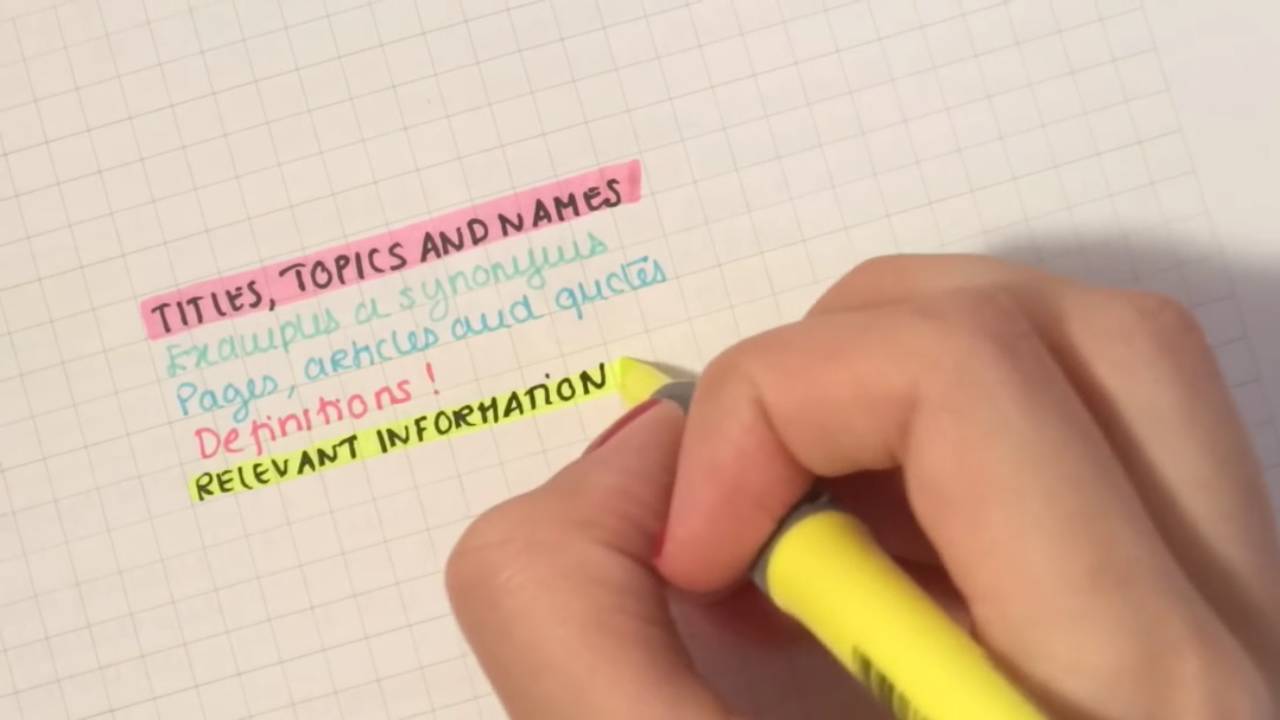 TITLES, TOPICS AND NAMES
Examples a synonyms
Pages, articles and quotes
Definitions !
RELEVANT INFORMATION